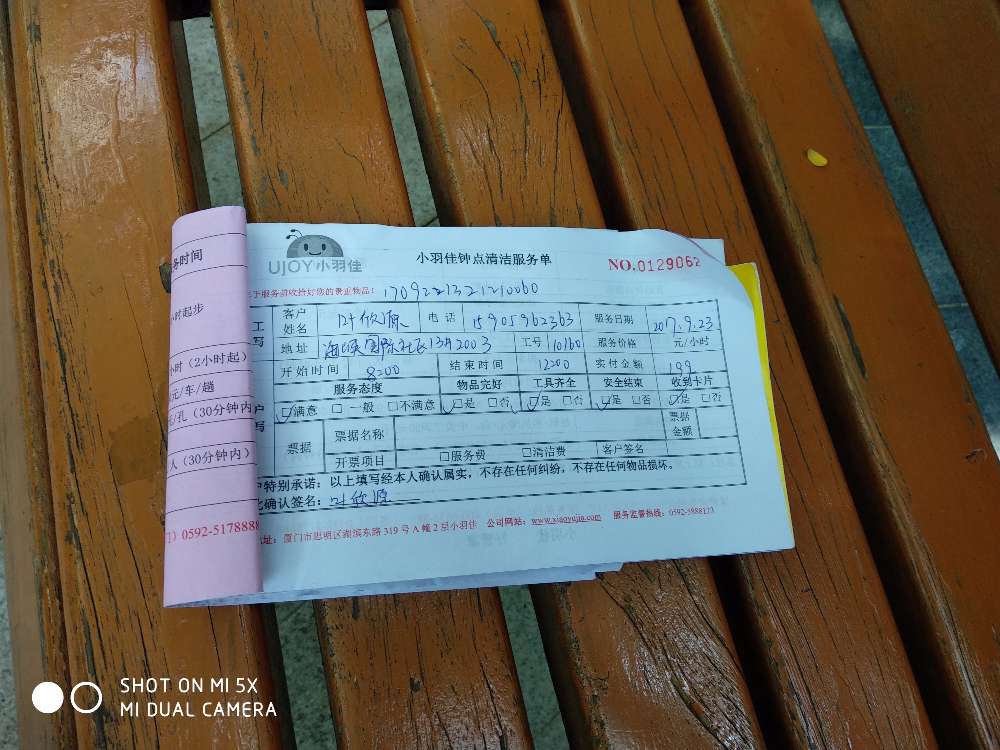 UJOY小羽佳
小羽佳钟点清洁服务单
NO.0129062
服务前收拾好您的贵重物品!
客户姓名 叶欣源 电话 15905962363 服务日期 2017.9.23
地址 2003 工号 10160 服务价格 元/小时
开始时间 8:00 结束时间 12:00 实付金额 199
服务态度 物品完好 工具齐全 安全结束 收到卡片
☑满意 □一般 □不满意 ☑是 □否 ☑是 □否 ☑是 □否 ☑是 □否
票据 票据名称 票据金额
开票项目 □服务费 □清洁费 客户签名
户特别承诺:以上填写经本人确认属实,不存在任何纠纷,不存在任何物品损坏。
比确认签名:叶欣源
地址:厦门市思明区湖滨东路319号A幢2层小羽佳 公司网站:www.xiaoyujia.com 服务监督热线:0592-5888123
务时间
小时起步
小时(2小时起)
元/车/趟
元/孔(30分钟内)
人(30分钟内)
0592-5178888
SHOT ON MI 5X
MI DUAL CAMERA